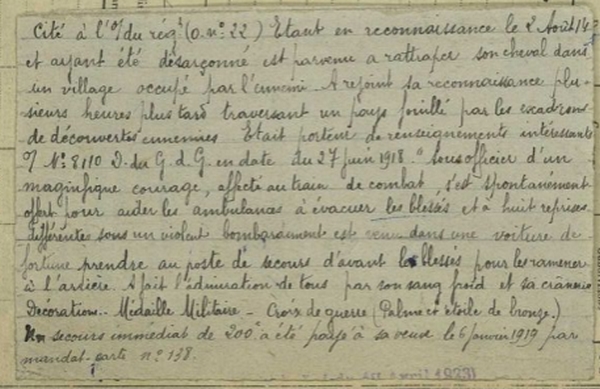 Cité à l'O/ du régt (O. n° 22) Etant en reconnaissance le 2 Août 14
et ayant été désarçonné est parvenu a rattraper son cheval dans
un village occupé par l'ennemi. A rejoint sa reconnaissance plu-
sieurs heures plus tard traversant un pays fouillé par les escadrons
de découvertes ennemies Etait porteur de renseignements intéressants
O/ N° 8110 D. du G. d. G. en date du 27 juin 1918. " Sous officier d'un
maginfique courage, affecté au train de combat, s'est spontanément
offert pour aider les ambulances à évacuer les blessés et à huit reprises
différentes sous un violent bombardement est venu dans une voiture de
fortune prendre au poste de secours d'avant les blessés pour les ramener
à l'arrière. A fait l'admiration de tous par son sang froid et sa crânerie
Décorations.. Médaille Militaire - Croix de guerre (Palme et étoile de bronze.)
Un secours immédiat de 200f a été payé à sa veuve le 6 janvier 1919 par
mandat-carte n° 138.
Avril 1923)